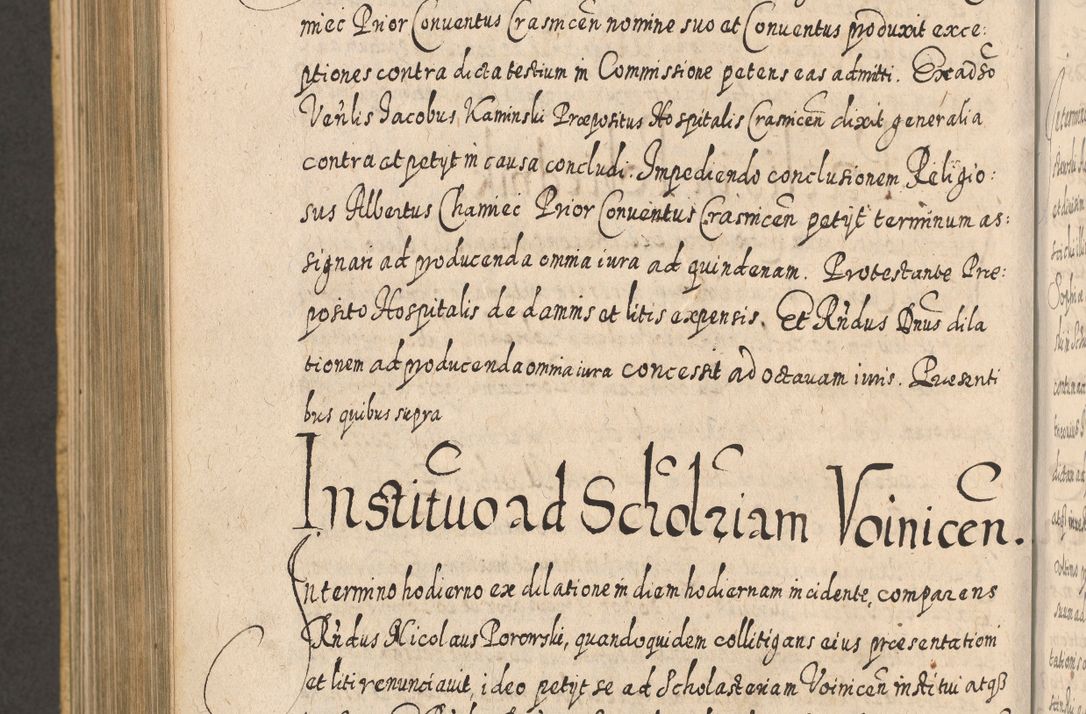 miec Prior Conventus Crasnicēn nomine suo et Conuentus produxit exce:
ptiones contra dicta testium in Commissione petens eas admitti. Ex adso
Venlis Jacobus Kaminski Præpositus Hospitalis Crasnicēn dixit generalia
contra et petyt in causa concludi. Impediendo conclusionem Religio:
sus Albertus Chamiec Prior Conuentus Crasnicēn petijt terminum as:
signari ad producenda omnia iura ad quindenam. Protestante Præ:
posito Hospitalis de damnis et litis expensis. Et Rndus Dnus dila
tionem ad producenda omnia iura concessit ad octauam iuris. Præsenti
bus quibus supra
Institutio ad Scholriam Voinicēn.
In termino hodierno ex dilatione in diem hodiernam incidente, comparens
Rndus Nicolaus Porowski, quandoquidem collitigans eius præsentationi
et liti renunciauit, ideo petijt se ad Scholasteriam Voinicēn institui atqß